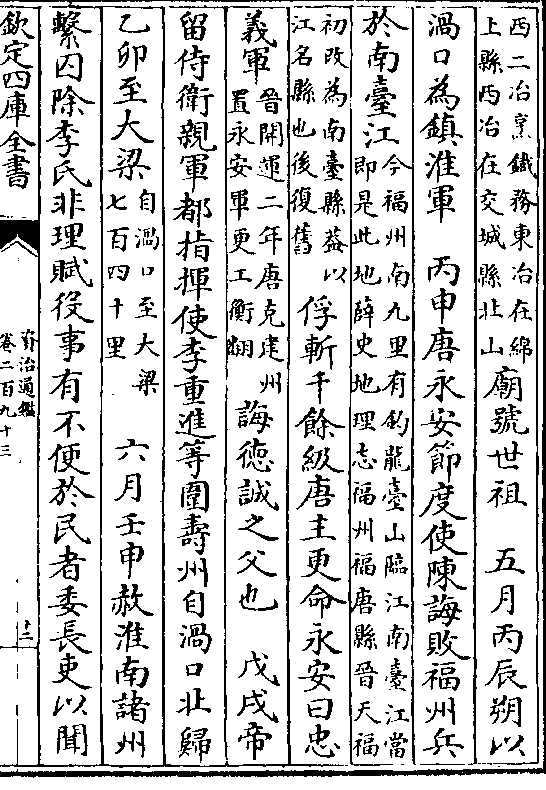 西二冶烹鐵務東冶在綿
上縣西冶在交城縣北山
廟號世祖　五月丙辰朔以
渦口為鎮淮軍　丙申唐永安節度使陳誨敗福州兵
於南臺江
今福州南九里有釣龍臺山臨江南臺江當
即是此地薛史地理志福州福唐縣晉天福
初改為南臺縣葢以
江名縣也後復舊
俘斬千餘級唐主更命永安曰忠
義軍
晉開運二年唐克建州
置永安軍更工衡翻
誨徳誠之父也　戊戌帝
留侍衛親軍都指揮使李重進等圍壽州自渦口北歸
乙卯至大梁
自渦口至大梁
七百四十里
六月壬申赦淮南諸州
繫囚除李氏非理賦役事有不便於民者委長吏以聞
欽定四庫全書
資治通鑑
卷二百九十三
十二